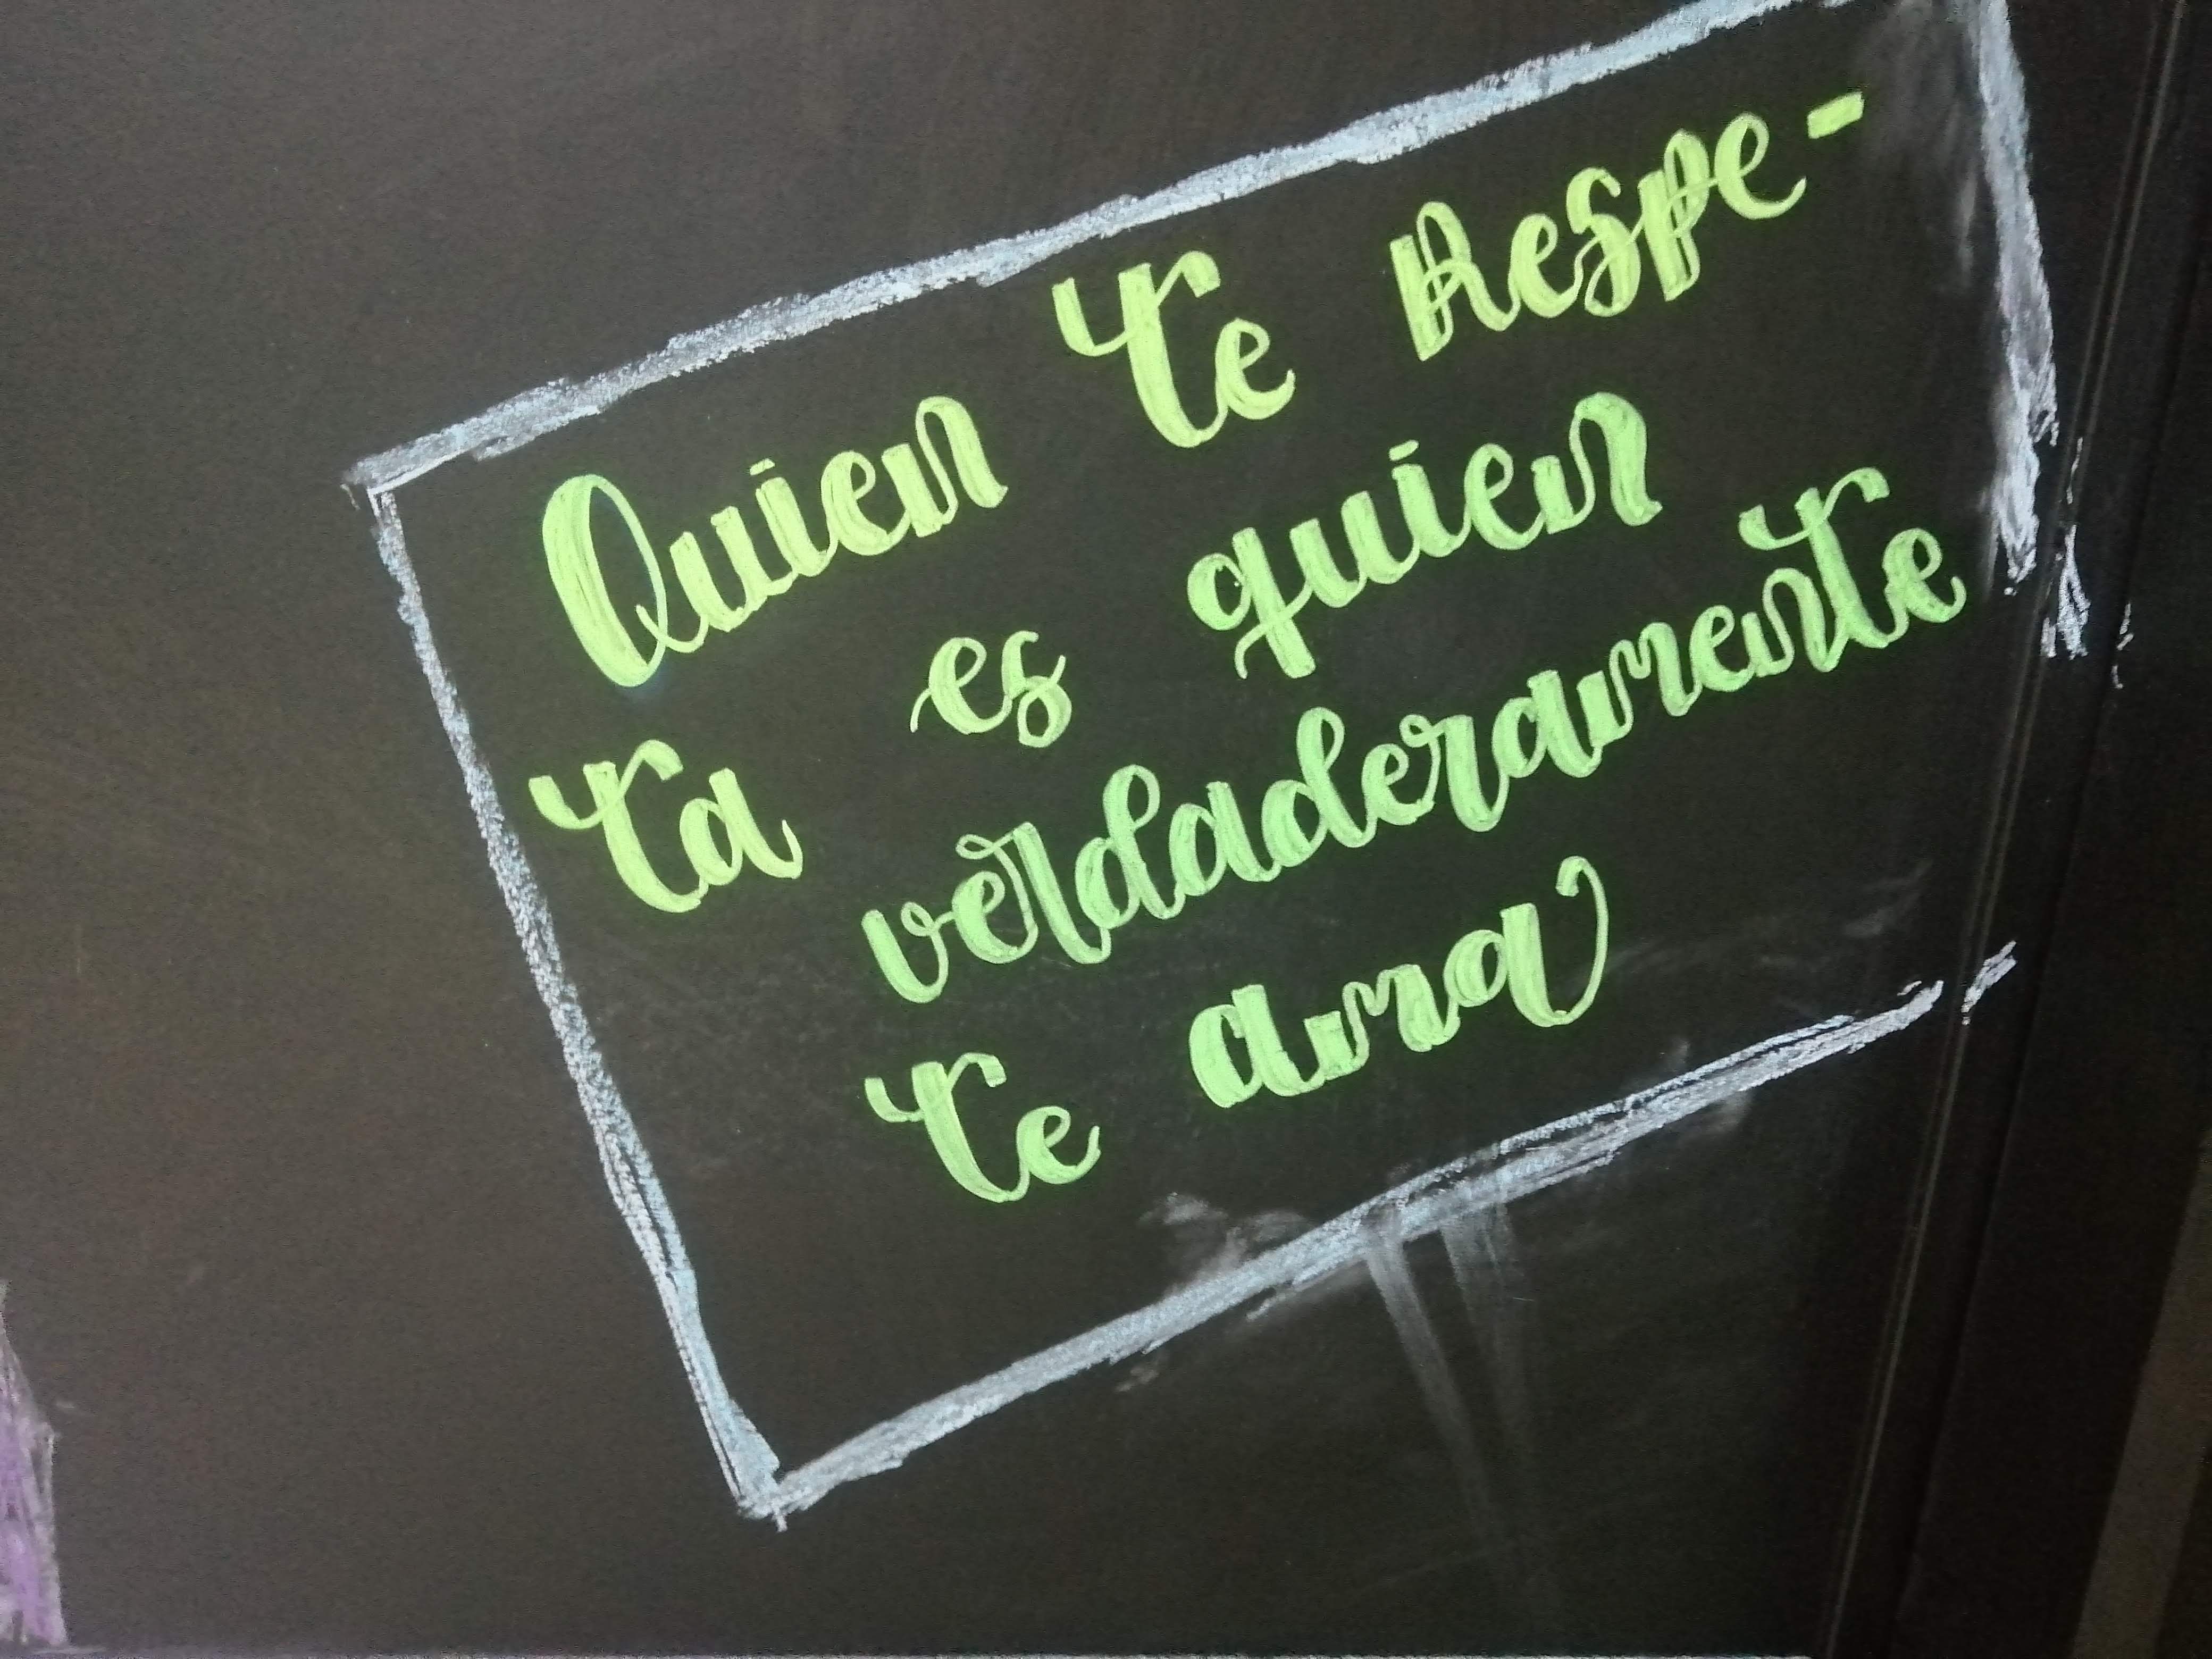 Quien te Respe-
ta es quien
verdaderamente
te ama